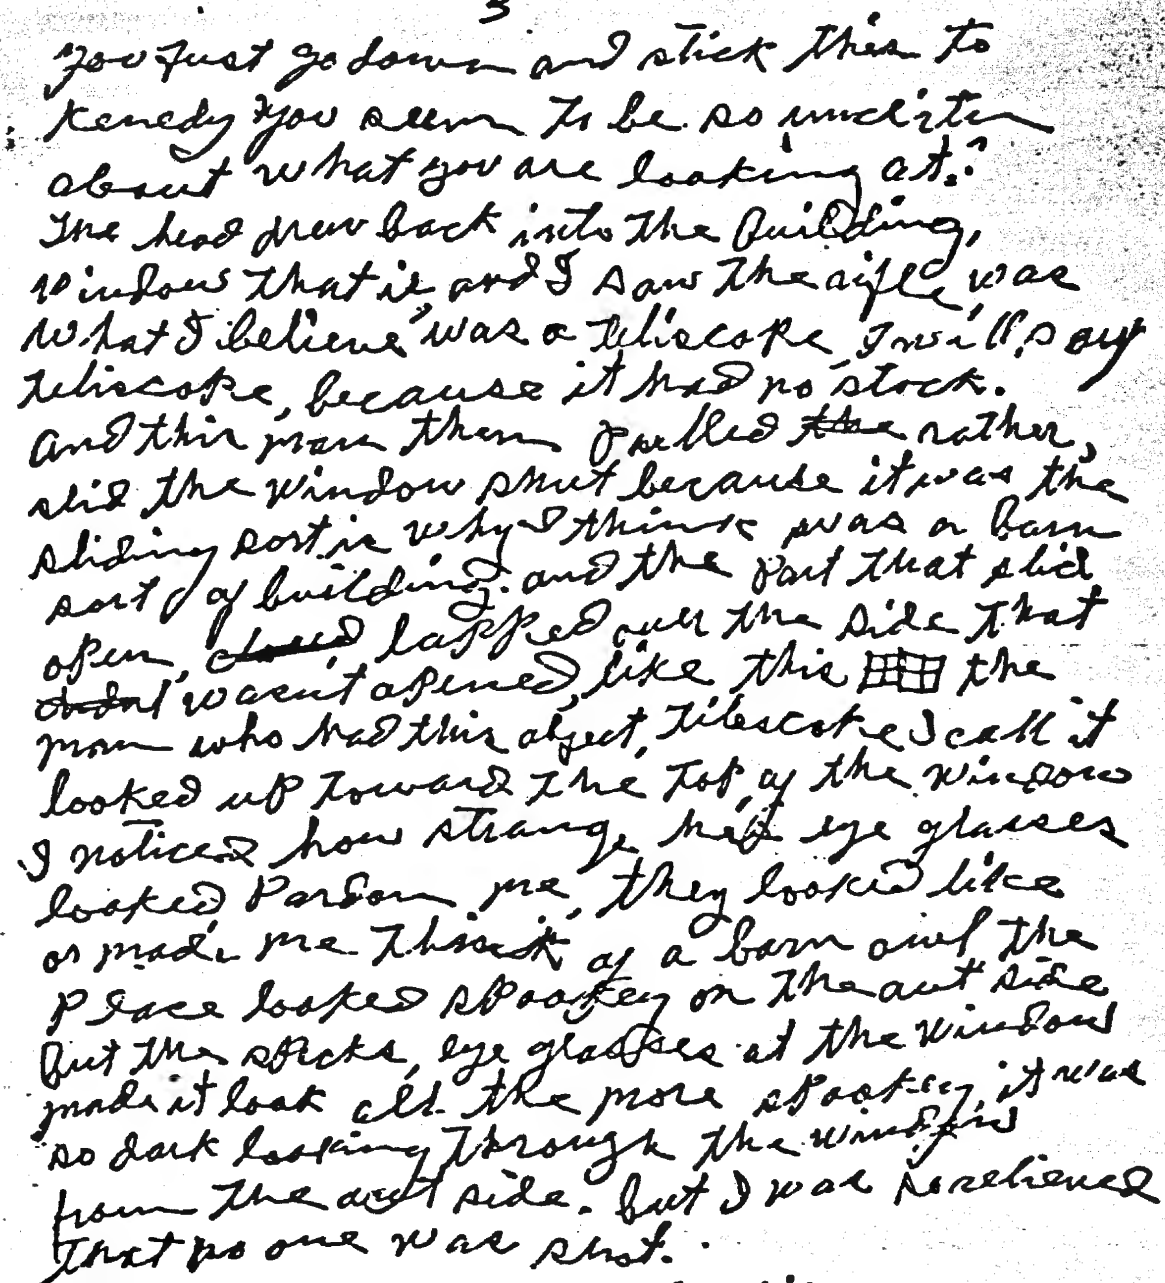 3
you just go down and stick this to
Kenedy you seem to be so unclirten
about what you are looking at.?
The head drew back into the Building,
window that is, and I saw the rifle, was
what I believe was a teliscope, I will say
teliscope, because it had no stock.
And this man then pulled the rather,
slid the window shut because it was the
sliding sort is why I think was a barn
sort of building. and the part that slid
open, closed lapped over the side that
didnt wasn't opened, like this the
man who had this object, telescope I call it
looked up toward the top of the window
I noticed how strange his eye glasses
looked, Pardon me, they looked like
or made me think of a barn owl the
place looked spookey on the out side
But the specks, eye glasses at the window
made it look all the more spookey, it was
so dark looking through the windows
from the out side. but I was relieved
that no one was shot.